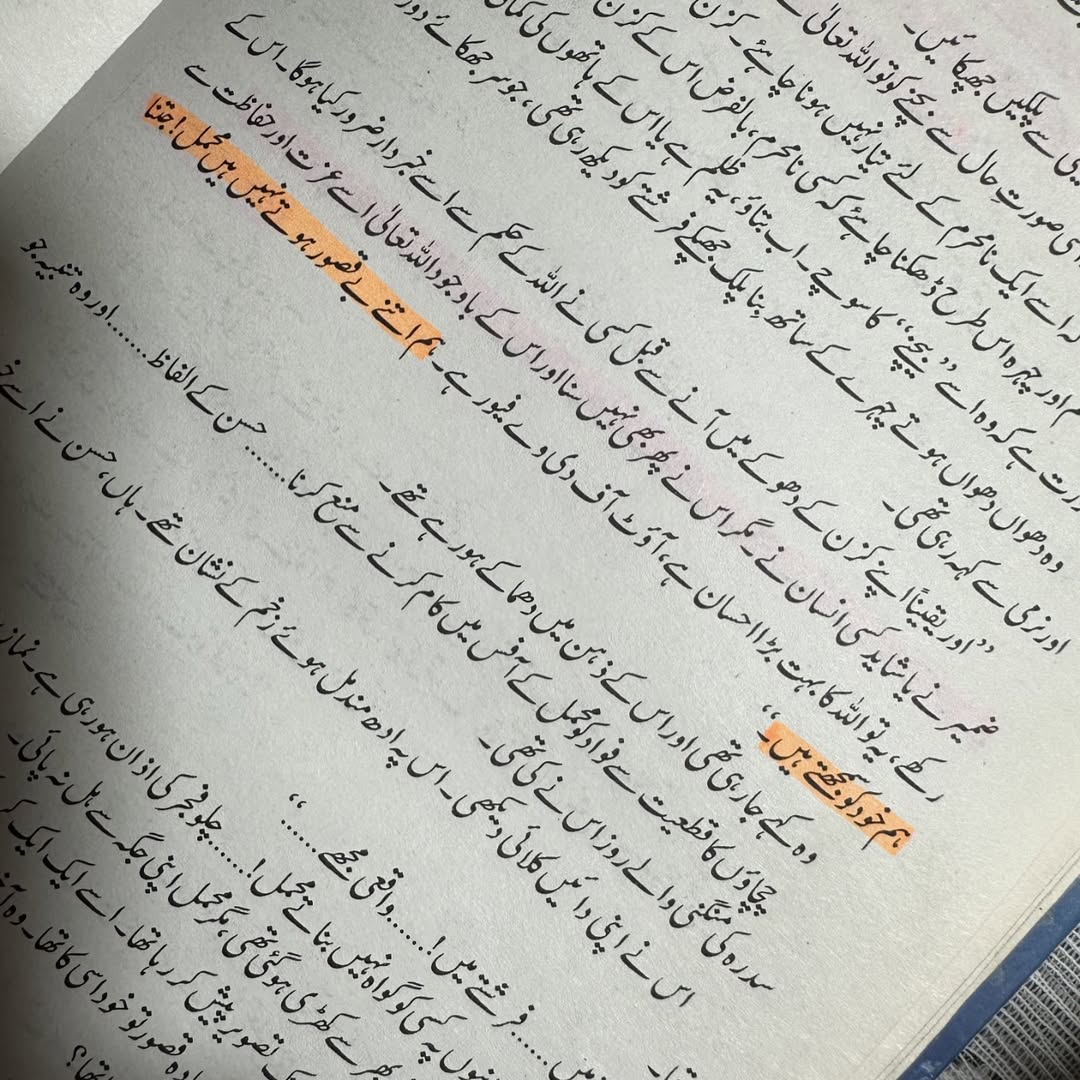 پلکیں جھپکائیں۔
صورت حال سے بچنے کو تو اللہ تعالیٰ
اسے ایک نامحرم کے لئے تیار نہیں ہونا چاہئے۔ کزن
اور چہرہ اس طرح ڈھکنا چاہئے کہ کسی نامحرم، بالفرض اس کے کزن
ہے کہ وہ اسے ”بچنے“ کا سوچے۔ اب بتاؤ، یہ ظلم ہے یا اس کے ہاتھوں کی کمائی
وہ دھواں دھواں ہوتے چہرے کے ساتھ بنا پلک جھپکے فرشتے کو دیکھ رہی تھی، جو سر جھکائے دور
اور نرمی سے کہہ رہی تھی۔
”اور یقیناً اپنے کزن کے دھوکے میں آنے سے قبل کسی نے اللہ کے حکم سے اسے خبردار ضرور کیا ہوگا۔ اس کے
ضمیر نے یا شاید کسی انسان نے۔ مگر اس نے پھر بھی نہیں سنا اور اس کے باوجود اللہ تعالیٰ اسے عزت اور حفاظت سے
رکھے، یہ تو اللہ کا بہت بڑا احسان ہے، آؤٹ آف دی وے فیور ہے۔ ہم اتنے بے قصور ہوتے نہیں ہیں محمل! جتنا
ہم خود کو سمجھتے ہیں۔“
وہ کہے جا رہی تھی اور اس کے ذہن میں دھماکے ہو رہے تھے۔
چچاؤں کا قطعیت سے فواد کو محمل کے آفس میں کام کرنے سے منع کرنا...... حسن کے الفاظ....... اور وہ تنبیہ جو
سدرہ کی منگنی والے روز اس نے کی تھی۔
اس نے اپنی دائیں کلائی دیکھی۔ اس پہ ادھ مندمل ہوئے زخم کے نشان تھے۔ ہاں، حسن نے اسے
فرشتے میں!...... واقعی مجھے......“
پہ کسی کو گواہ نہیں بناتے محمل!...... چلو فجر کی اذان ہو رہی ہے۔ نماز
سے کھڑی ہو گئی تھی، مگر محمل اپنی جگہ سے ہل نہ پائی۔
تصویر پیش کر رہا تھا۔ اسے ایک ایک کر
قصور تو خود اسی کا تھا۔ وہ
تھا؟